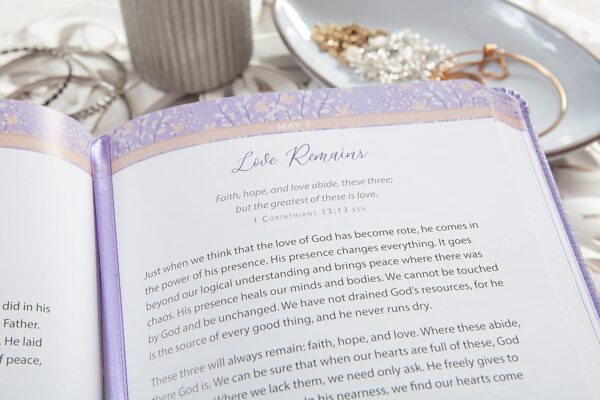 did in his
Father.
He laid
f peace,
MAY 5
Love Remains
Faith, hope, and love abide, these three;
but the greatest of these is love.
1 CORINTHIANS 13:13 ESV
Just when we think that the love of God has become rote, he comes in
the power of his presence. His presence changes everything. It goes
beyond our logical understanding and brings peace where there was
chaos. His presence heals our minds and bodies. We cannot be touched
by God and be unchanged. We have not drained God's resources, for he
is the source of every good thing, and he never runs dry.
These three will always remain: faith, hope, and love. Where these abide,
there God is. We can be sure that when our hearts are full of these, God
Where we lack them, we need only ask. He freely gives to
in his nearness, we find our hearts come